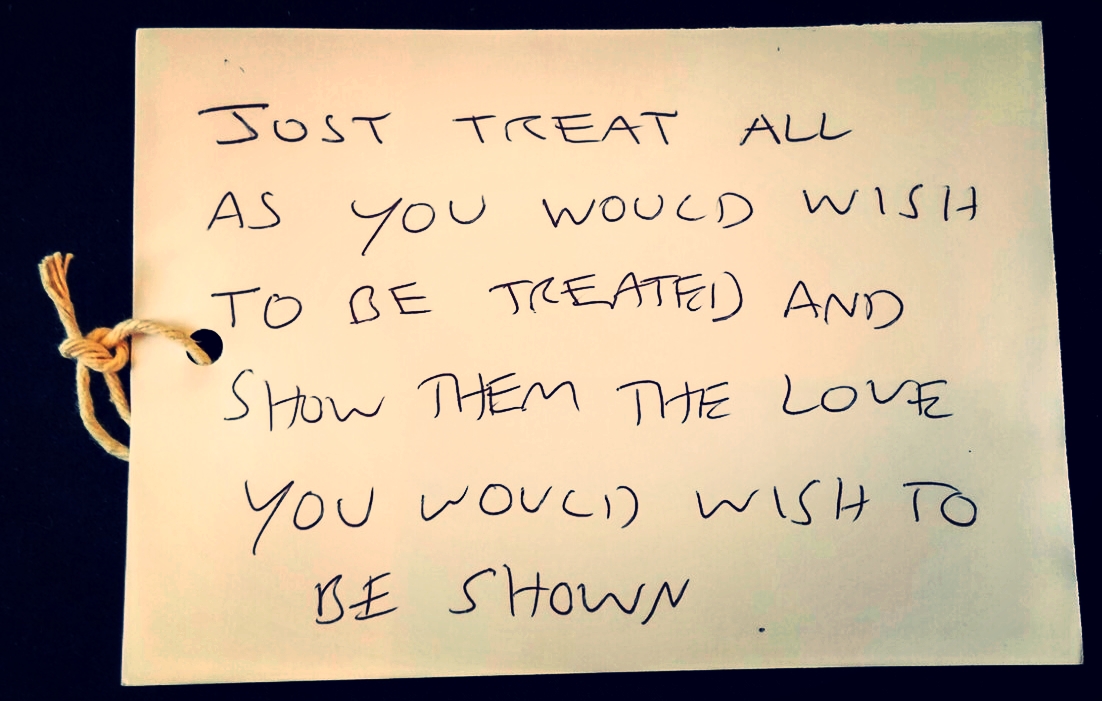 JUST TREAT ALL
AS YOU WOULD WISH
TO BE TREATED AND
SHOW THEM THE LOVE
YOU WOULD WISH TO
BE SHOWN